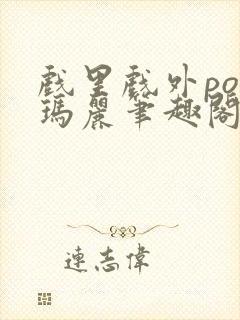 戲里戲外po
瑪麗筆趣閣
連志偉